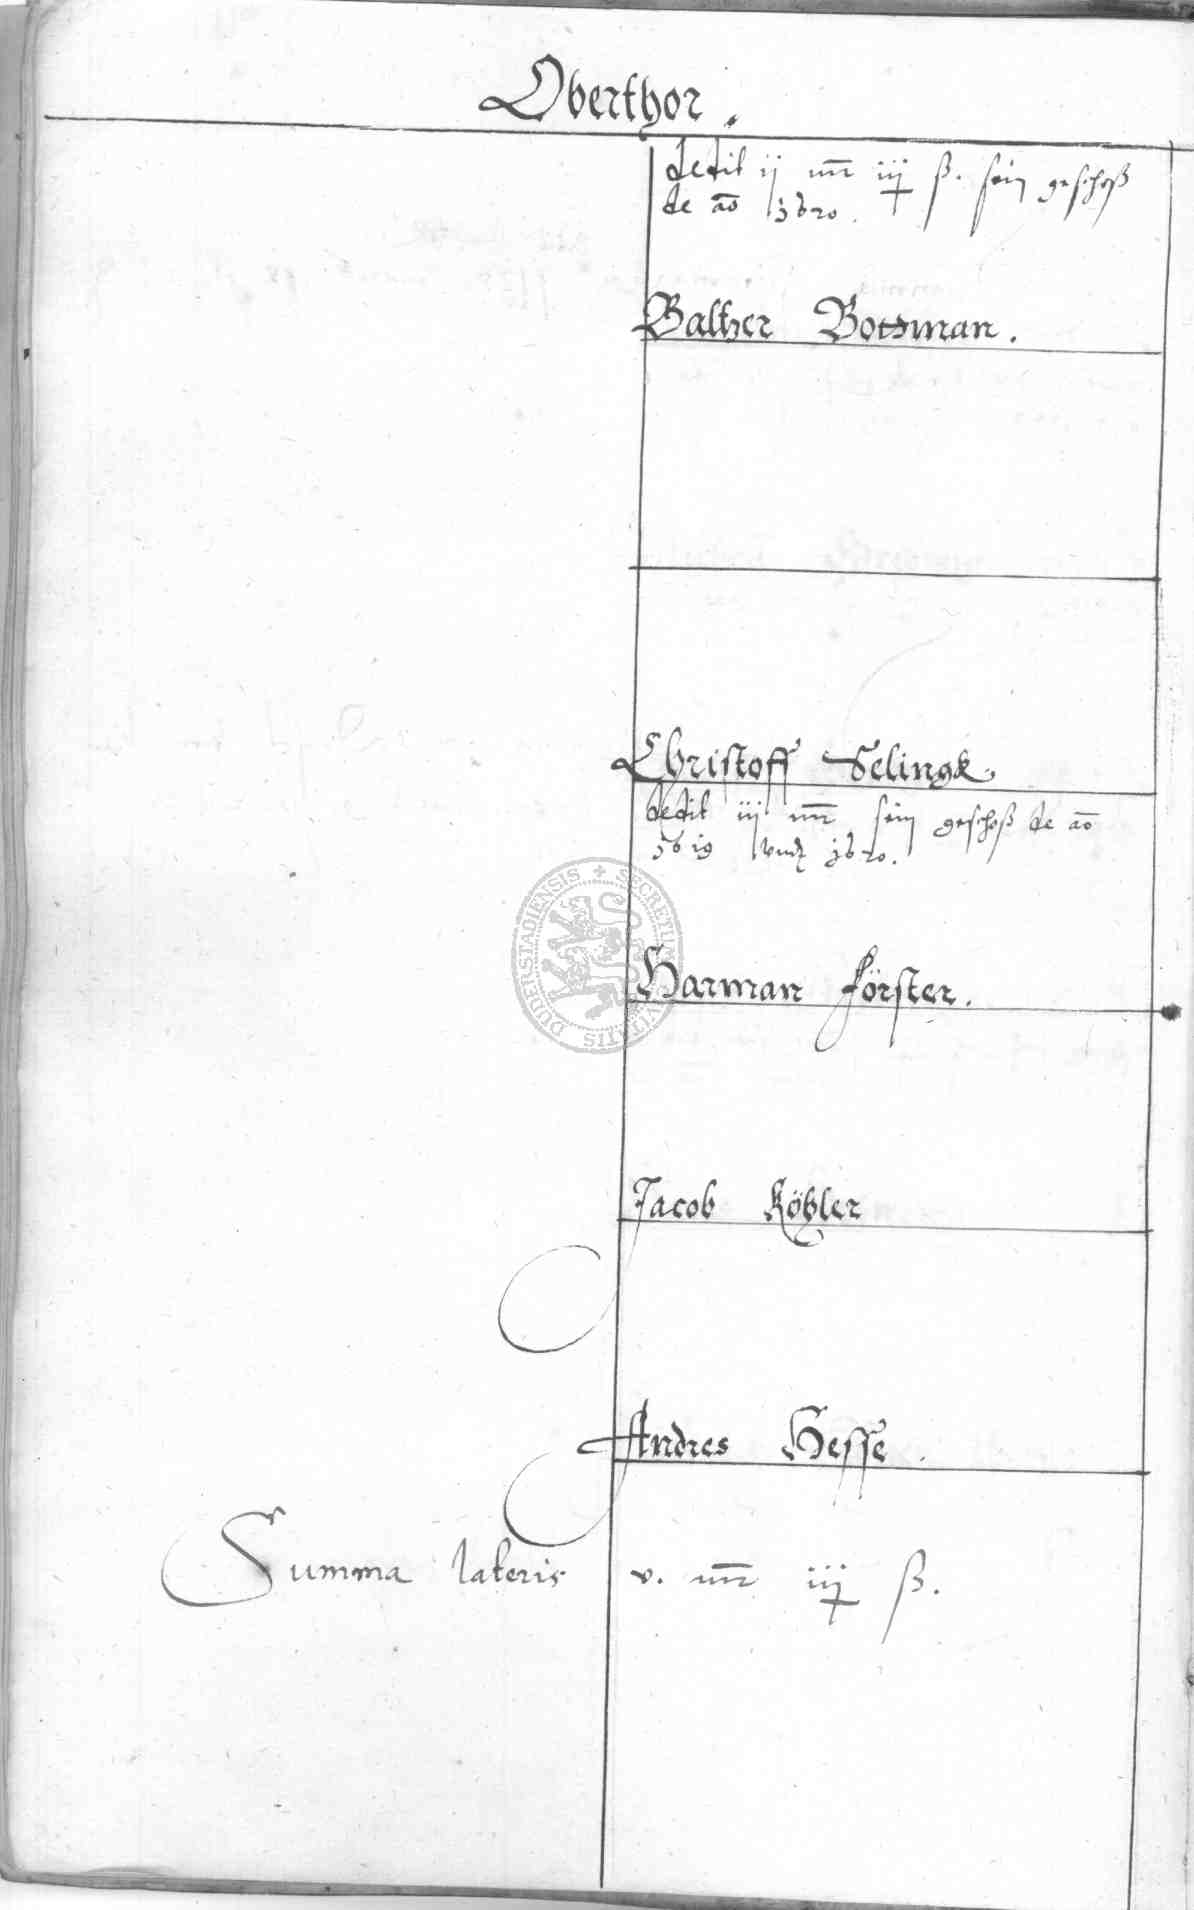 Oberthor.
dedit ij mr iij ß. sein geschoß
de ao 1620.
Baltzer Bottman.
Christoff Selingk.
dedit iij mr sein geschoß de ao
1619 vnd 1620.
Harman Förster.
Jacob Köhler
Andres Hesse.
Summa lateris v. mr iij ß.
SECRETUM CIVITATIS DUDERSTADIENSIS